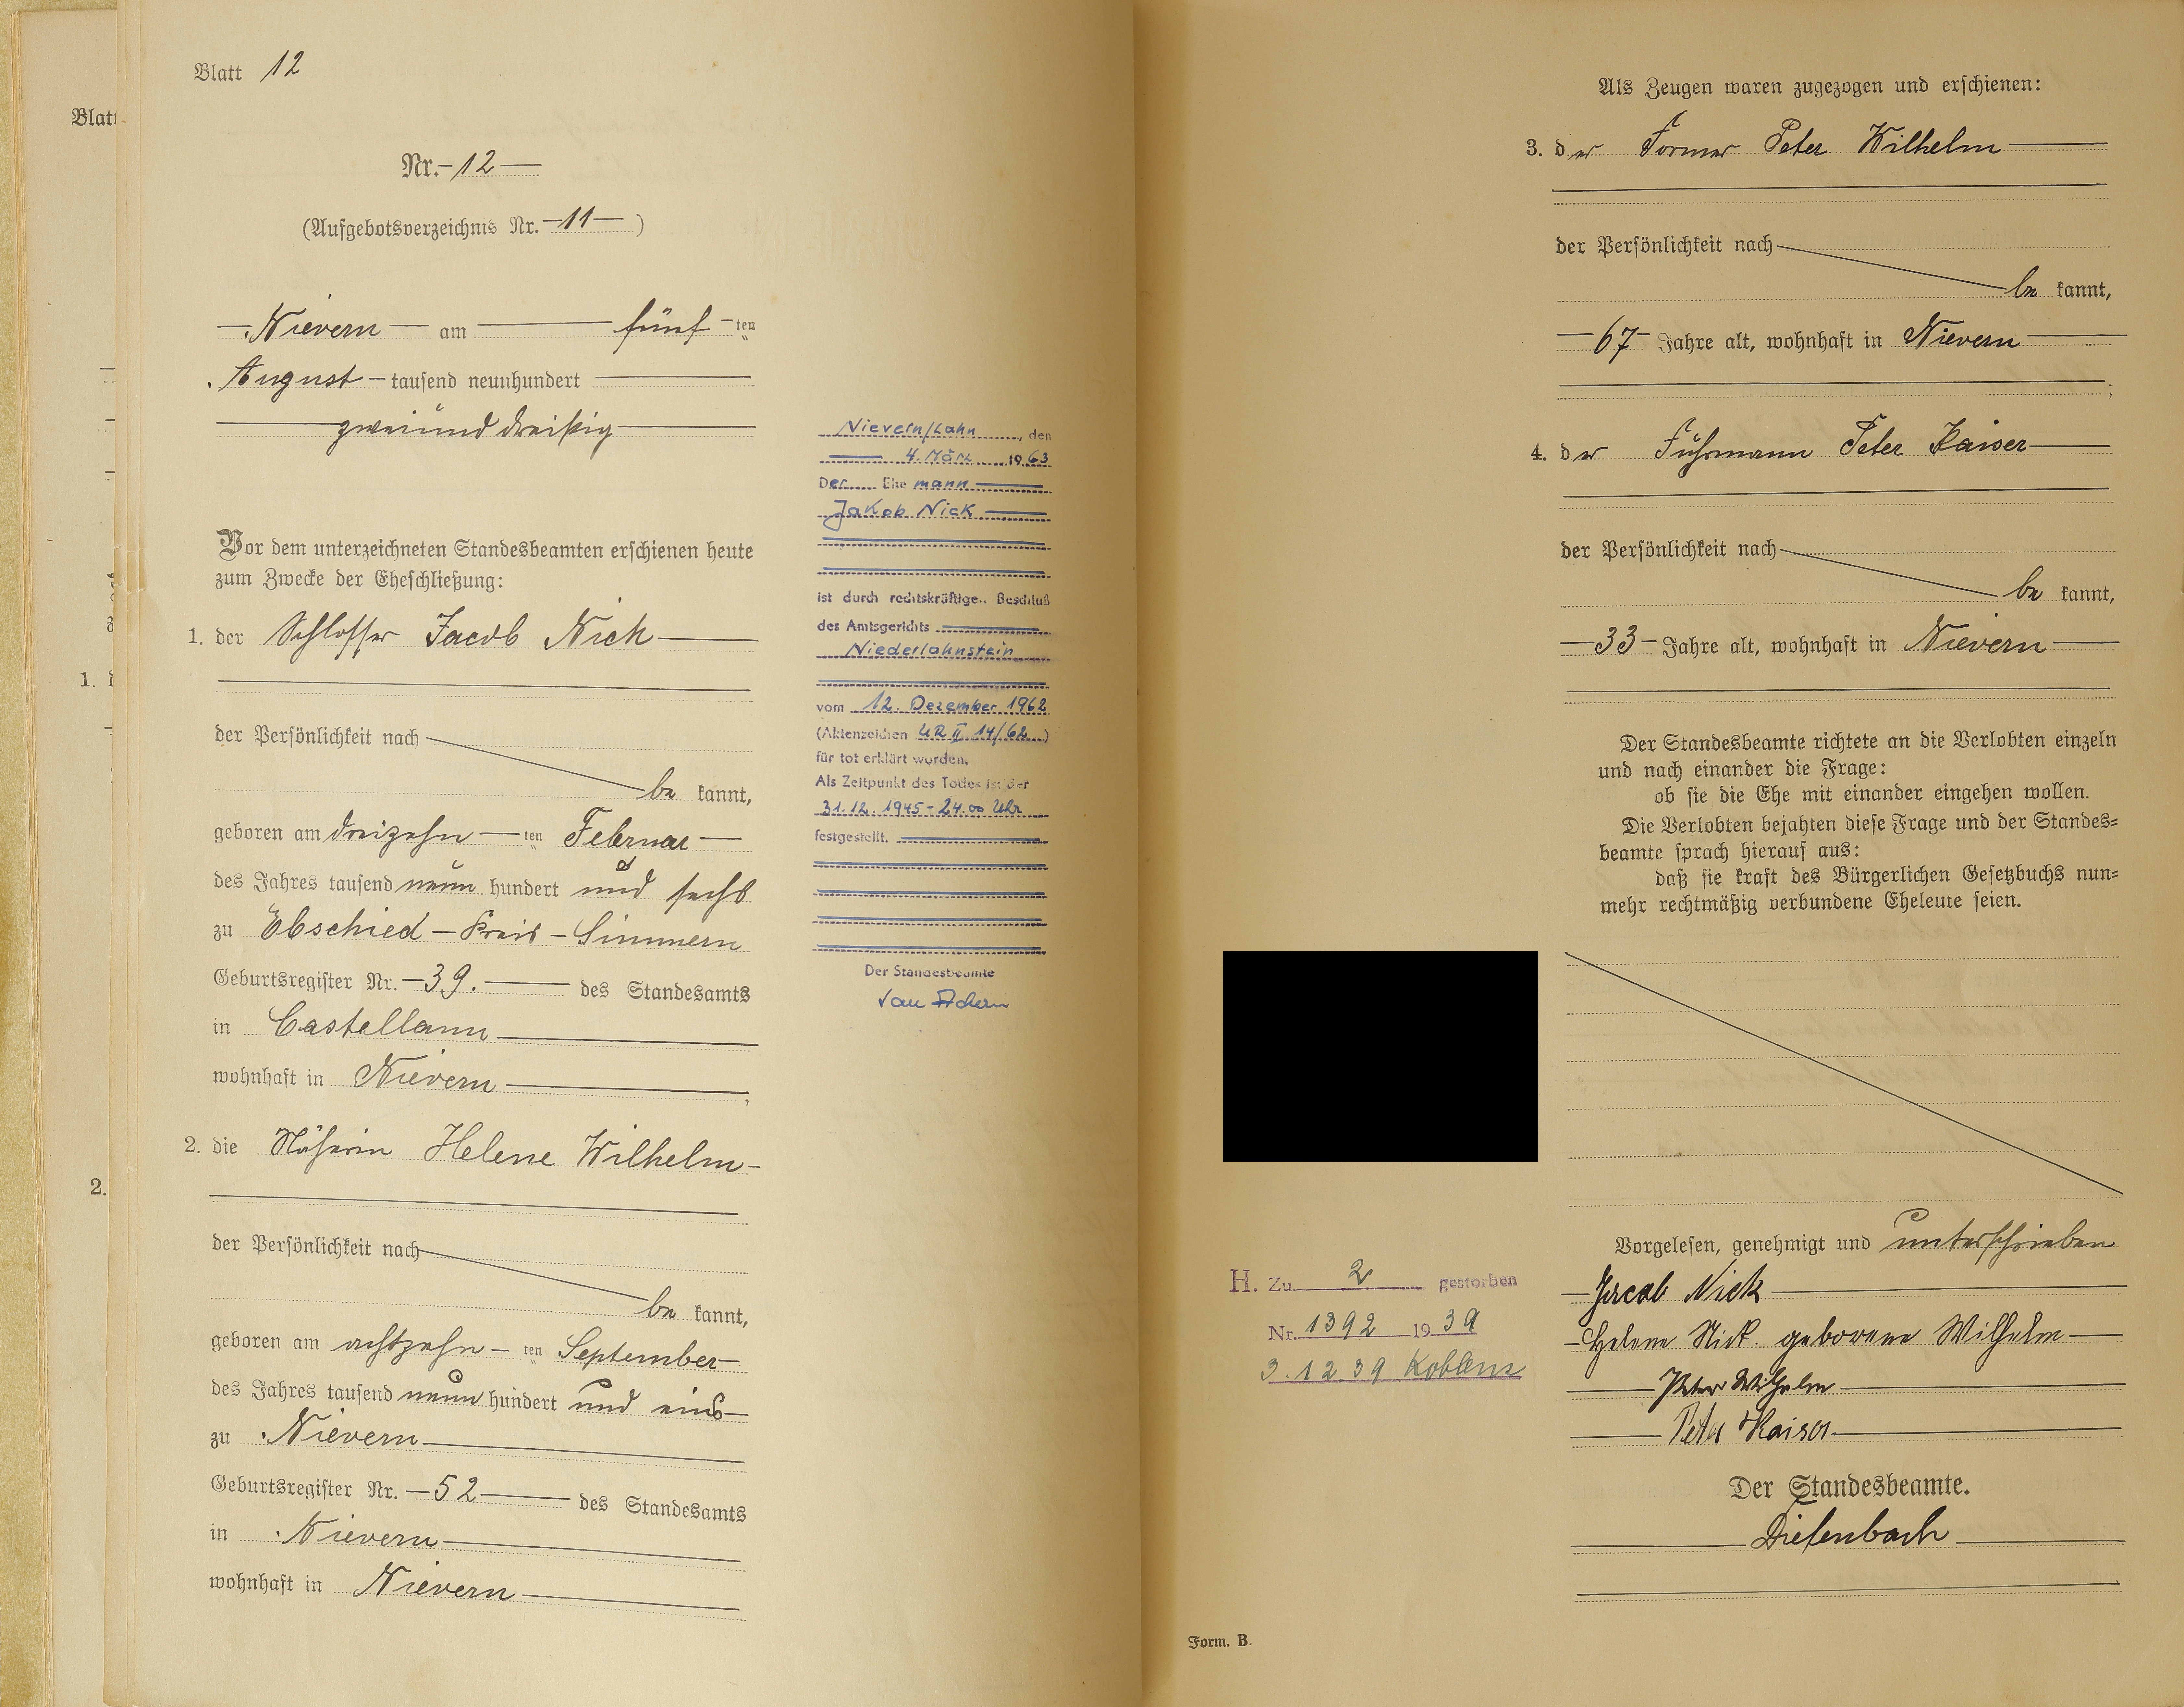 Blatt 12
Blatt
Nr. 12
(Aufgebotsverzeichnis Nr. 11)
Nievern am fünf ten
August tausend neunhundert
zweiund dreißig
Vor dem unterzeichneten Standesbeamten erschienen heute
zum Zwecke der Eheschließung:
1. der Schlosser Jacob Nick
der Persönlichkeit nach
be kannt,
geboren am dreizehn ten Februar
des Jahres tausend neun hundert und sechs
zu Ebschied - Kreis - Simmern
Geburtsregister Nr. 39. des Standesamts
in Castellaun
wohnhaft in Nievern ,
2. die Näherin Helene Wilhelm
der Persönlichkeit nach
be kannt,
geboren am achtzehn ten September
des Jahres tausend neun hundert und eins
zu Nievern
Geburtsregister Nr. 52 des Standesamts
in Nievern
wohnhaft in Nievern
1.
2.
Nievern/Lahn, den
4. März 1963
Der Ehe mann
Jakob Nick
ist durch rechtskräftige.. Beschluß
des Amtsgerichts
Niederlahnstein
vom 12. Dezember 1962
(Aktenzeichen UR II 14/62)
für tot erklärt worden.
Als Zeitpunkt des Todes ist der
31.12.1945 - 24.00 Uhr
festgestellt.
Der Standesbeamte
Als Zeugen waren zugezogen und erschienen:
3. der Former Peter Wilhelm
der Persönlichkeit nach
be kannt,
67 Jahre alt, wohnhaft in Nievern
;
4. der Fuhrmann Peter Kaiser
der Persönlichkeit nach
be kannt,
33 Jahre alt, wohnhaft in Nievern
Der Standesbeamte richtete an die Verlobten einzeln
und nach einander die Frage:
ob sie die Ehe mit einander eingehen wollen.
Die Verlobten bejahten diese Frage und der Standes-
beamte sprach hierauf aus:
daß sie kraft des Bürgerlichen Gesetzbuchs nun-
mehr rechtmäßig verbundene Eheleute seien.
Vorgelesen, genehmigt und unterschrieben
Jacob Nick
Helene Nick geborene Wilhelm
Peter Wilhelm
Peter Kaiser
Der Standesbeamte.
Diefenbach
H. Zu 2 gestorben
Nr. 1392 1939
3.12.39 Koblenz
Form. B.